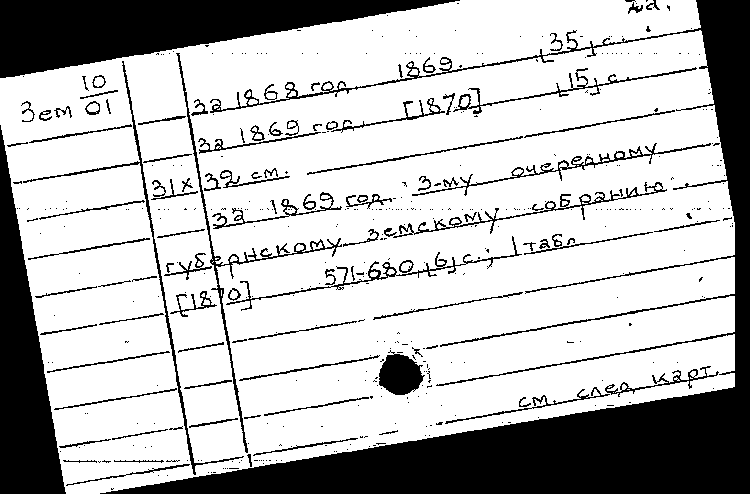 Зем 10/01
за 1868 год. 1869. [35] с.
за 1869 год. [1870] [15] с.
31 x 32 см.
за 1869 год. 3-му очередному
губернскому земскому собранию.
[1870] 571-680, [6] с.; 1 табл
см. след. карт.